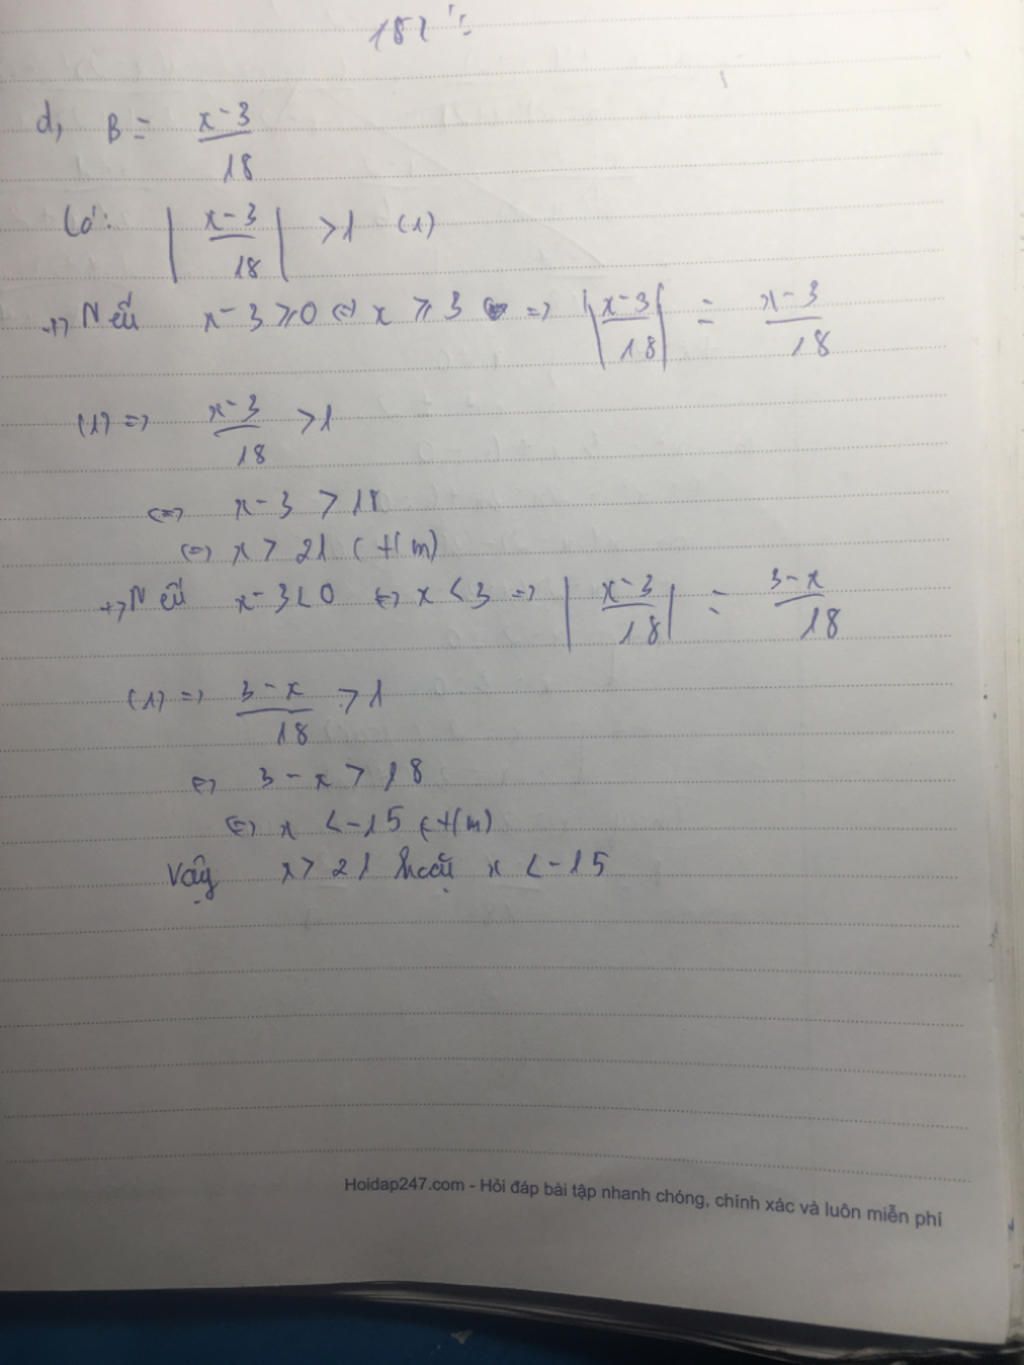 d, B = (x-3)/18
Có: |(x-3)/18| > 1 (1)
+> Nếu x-3 ≥ 0 <=> x ≥ 3 => |(x-3)/18| = (x-3)/18
(1) => (x-3)/18 > 1
<=> x-3 > 18
<=> x > 21 (t/m)
+> Nếu x-3 < 0 <=> x < 3 => |(x-3)/18| = (3-x)/18
(1) => (3-x)/18 > 1
<=> 3-x > 18
<=> x < -15 (t/m)
Vậy x > 21 hoặc x < -15
Hoidap247.com - Hỏi đáp bài tập nhanh chóng, chính xác và luôn miễn phí